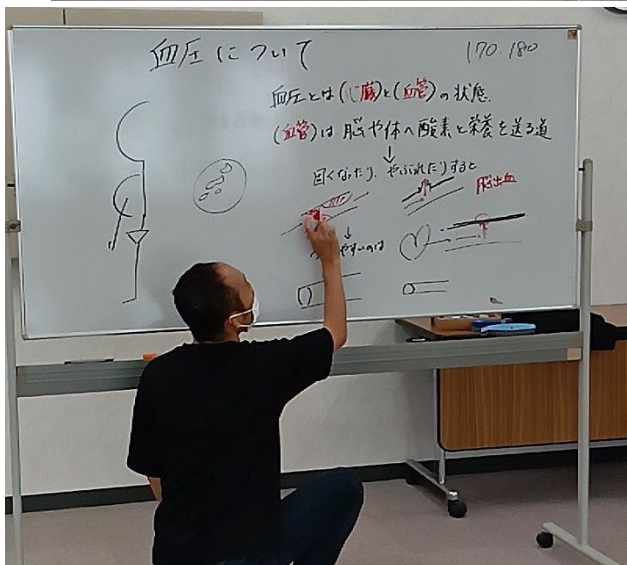 血圧について
170.180
血圧とは(心臓)と(血管)の状態.
(血管)は脳や体へ酸素と栄養を送る道
↓
固くなったり、やぶれたりすると
脳出血
↓
やすいのは